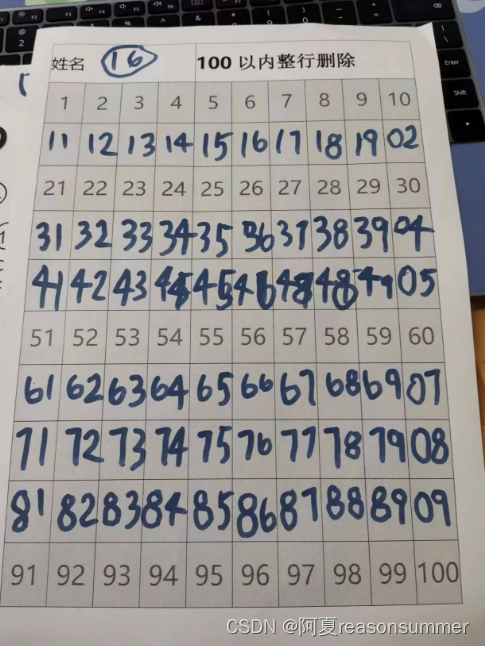 姓名 16 100 以内整行删除
1 2 3 4 5 6 7 8 9 10
11 12 13 14 15 16 17 18 19 02
21 22 23 24 25 26 27 28 29 30
31 32 33 34 35 36 37 38 39 04
41 42 43 45 45 46 48 48 49 05
51 52 53 54 55 56 57 58 59 60
61 62 63 64 65 66 67 68 69 07
71 72 73 74 75 76 77 78 79 08
81 82 83 84 85 86 87 88 89 09
91 92 93 94 95 96 97 98 99 100
CSDN @阿夏reasonsummer